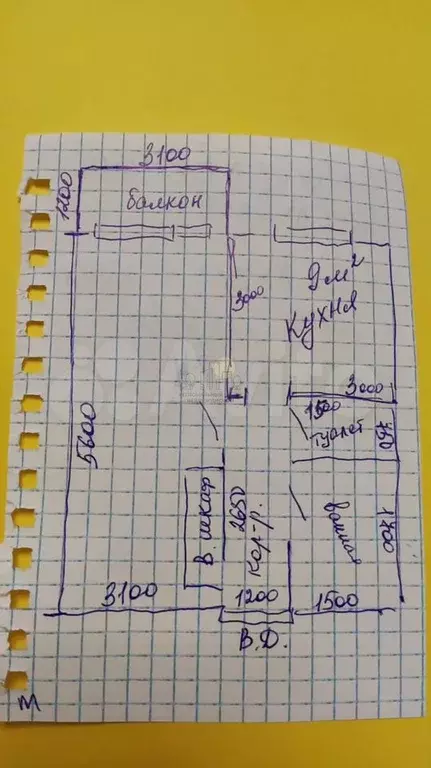 3100
1200
балкон
9 м²
кухня
3000
3000
5600
1500
туалет
760
В. шкаф
2650
кор-р.
ванная
1700
3100
1200
1500
В.Д.